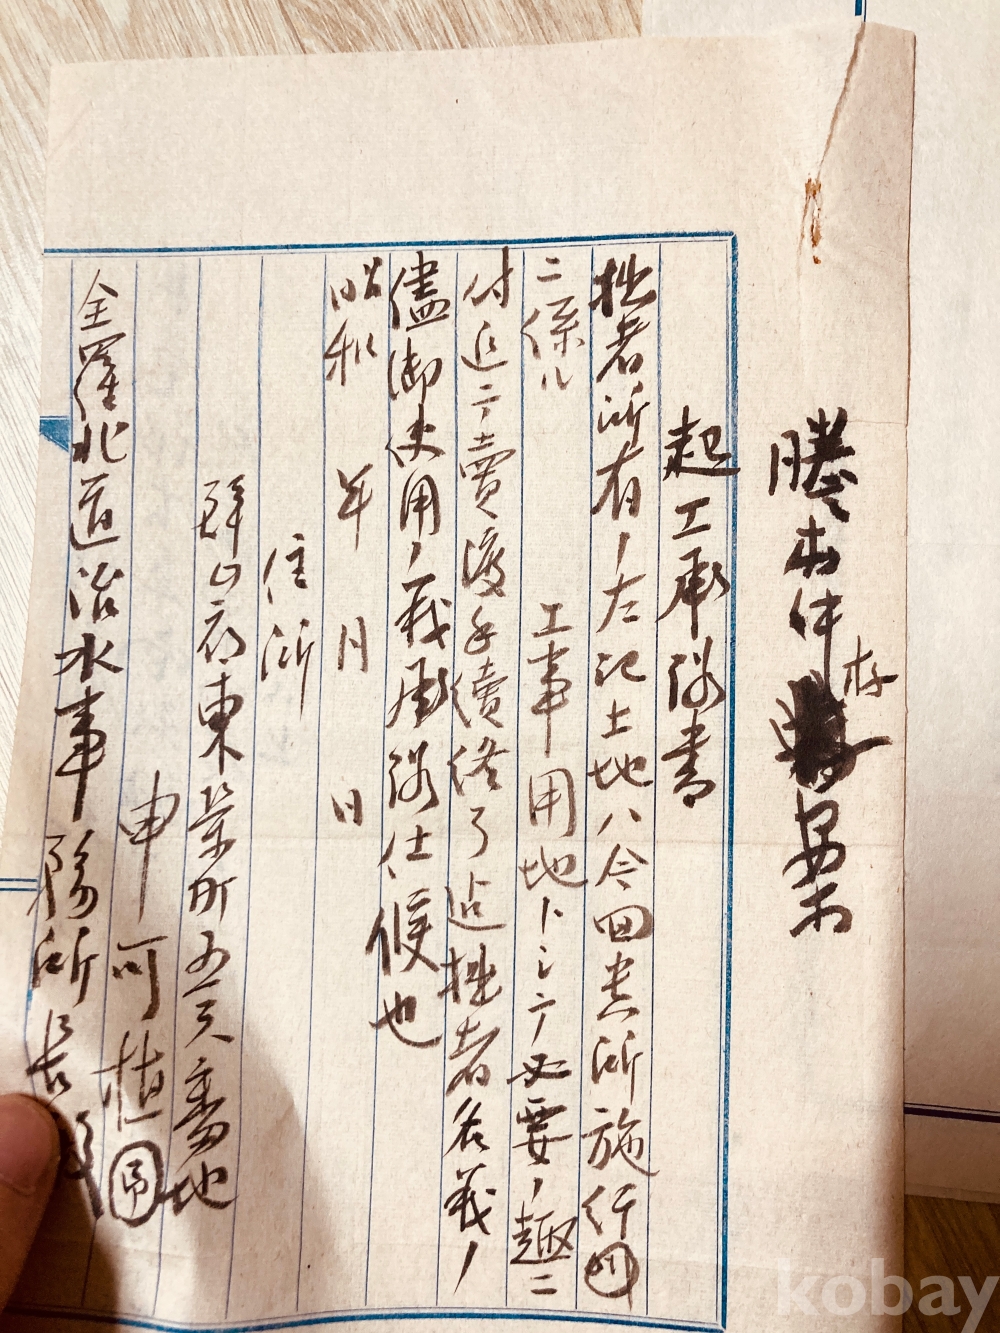 謄本保存
起工承諾書
拙者所有ノ左記土地ハ今回貴所施行
ニ係ル 工事用地トシテ必要ノ趣ニ
付追テ賣渡手續終了迄拙者名義ノ
儘御使用ノ義承諾仕候也
昭和 年 月 日
住所
群山府東榮町 番地
申可植
全羅北道治水事務所長
kobay